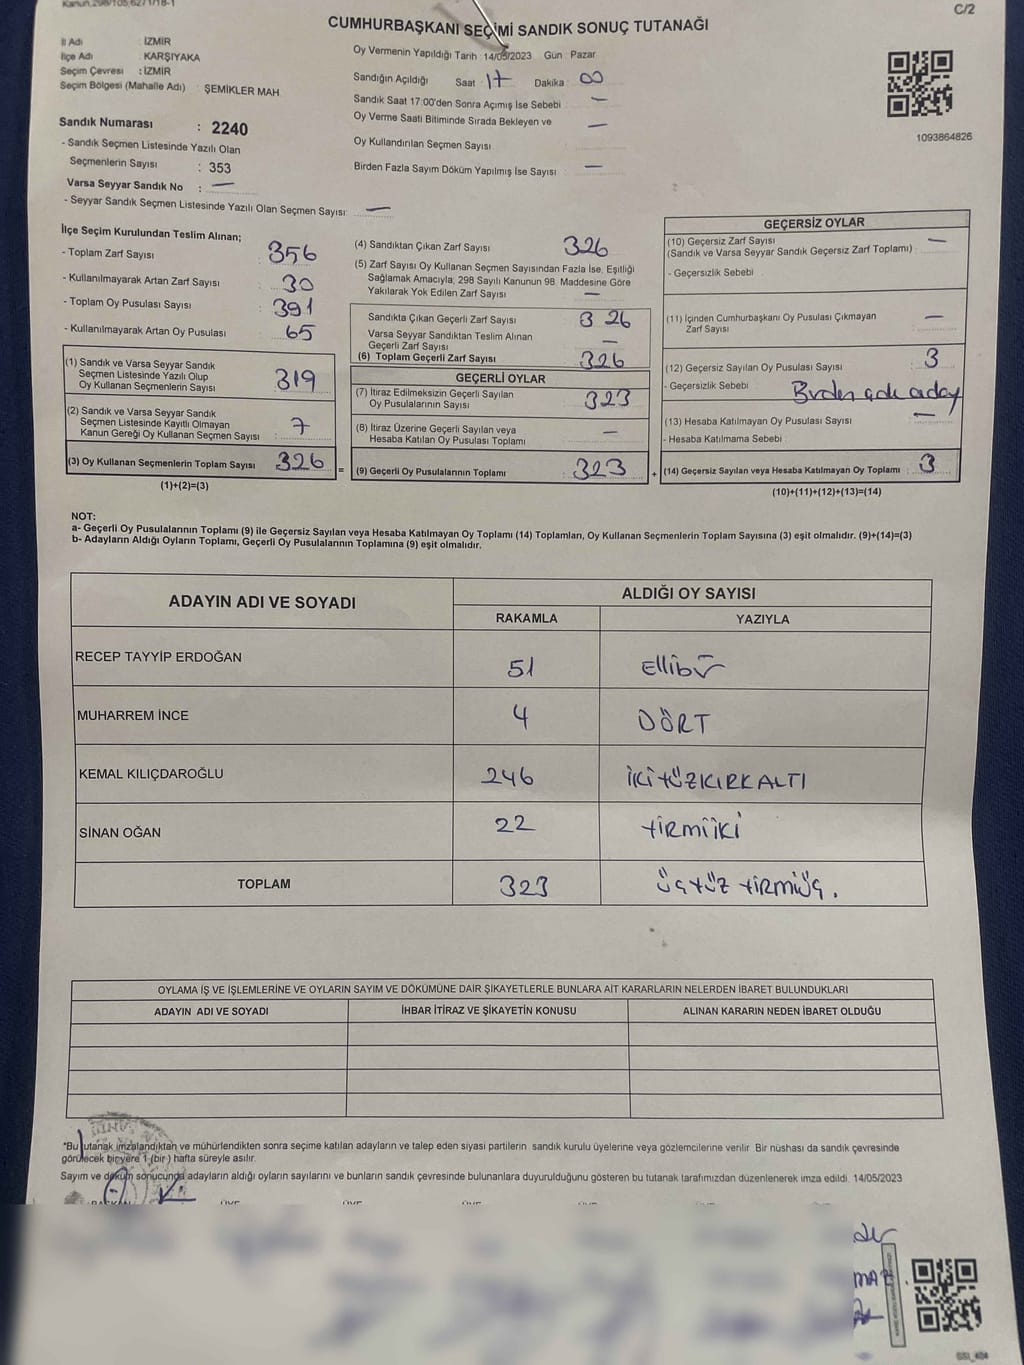 Kanun:298/105,6271/18-1
C/2
CUMHURBAŞKANI SEÇİMİ SANDIK SONUÇ TUTANAĞI
İl Adı : İZMİR
İlçe Adı : KARŞIYAKA
Seçim Çevresi : İZMİR
Seçim Bölgesi (Mahalle Adı) : ŞEMİKLER MAH
Sandık Numarası : 2240
- Sandık Seçmen Listesinde Yazılı Olan
Seçmenlerin Sayısı : 353
Varsa Seyyar Sandık No : —
- Seyyar Sandık Seçmen Listesinde Yazılı Olan Seçmen Sayısı: —
Oy Vermenin Yapıldığı Tarih 14/05/2023 Gün Pazar
Sandığın Açıldığı Saat 17 Dakika 00
Sandık Saat 17:00'den Sonra Açımış İse Sebebi —
Oy Verme Saati Bitiminde Sırada Bekleyen ve —
Oy Kullandırılan Seçmen Sayısı
Birden Fazla Sayım Döküm Yapılmış İse Sayısı —
1093864826
İlçe Seçim Kurulundan Teslim Alınan;
- Toplam Zarf Sayısı : 356
- Kullanılmayarak Artan Zarf Sayısı : 30
- Toplam Oy Pusulası Sayısı : 391
- Kullanılmayarak Artan Oy Pusulası : 65
(1) Sandık ve Varsa Seyyar Sandık
Seçmen Listesinde Yazılı Olup
Oy Kullanan Seçmenlerin Sayısı : 319
(2) Sandık ve Varsa Seyyar Sandık
Seçmen Listesinde Kayıtlı Olmayan
Kanun Gereği Oy Kullanan Seçmen Sayısı : 7
(3) Oy Kullanan Seçmenlerin Toplam Sayısı : 326 =
(1)+(2)=(3)
(4) Sandıktan Çıkan Zarf Sayısı 326
(5) Zarf Sayısı Oy Kullanan Seçmen Sayısından Fazla İse, Eşitliği
Sağlamak Amacıyla, 298 Sayılı Kanunun 98. Maddesine Göre
Yakılarak Yok Edilen Zarf Sayısı : —
Sandıkta Çıkan Geçerli Zarf Sayısı : 326
Varsa Seyyar Sandıktan Teslim Alınan
Geçerli Zarf Sayısı : —
(6) Toplam Geçerli Zarf Sayısı : 326
GEÇERLİ OYLAR
(7) İtiraz Edilmeksizin Geçerli Sayılan
Oy Pusulalarının Sayısı : 323
(8) İtiraz Üzerine Geçerli Sayılan veya
Hesaba Katılan Oy Pusulası Toplamı : —
(9) Geçerli Oy Pusulalarının Toplamı : 323 +
GEÇERSİZ OYLAR
(10) Geçersiz Zarf Sayısı —
(Sandık ve Varsa Seyyar Sandık Geçersiz Zarf Toplamı) :
- Geçersizlik Sebebi :
(11) İçinden Cumhurbaşkanı Oy Pusulası Çıkmayan
Zarf Sayısı : —
(12) Geçersiz Sayılan Oy Pusulası Sayısı : 3
- Geçersizlik Sebebi : Birden çok aday
(13) Hesaba Katılmayan Oy Pusulası Sayısı : —
- Hesaba Katılmama Sebebi :
(14) Geçersiz Sayılan veya Hesaba Katılmayan Oy Toplamı : 3
(10)+(11)+(12)+(13)=(14)
NOT:
a- Geçerli Oy Pusulalarının Toplamı (9) ile Geçersiz Sayılan veya Hesaba Katılmayan Oy Toplamı (14) Toplamları, Oy Kullanan Seçmenlerin Toplam Sayısına (3) eşit olmalıdır. (9)+(14)=(3)
b- Adayların Aldığı Oyların Toplamı, Geçerli Oy Pusulalarının Toplamına (9) eşit olmalıdır.
ADAYIN ADI VE SOYADI
ALDIĞI OY SAYISI
RAKAMLA YAZIYLA
RECEP TAYYİP ERDOĞAN 51 Ellibir
MUHARREM İNCE 4 DÖRT
KEMAL KILIÇDAROĞLU 246 İKİYÜZKIRKALTI
SİNAN OĞAN 22 YİRMİİKİ
TOPLAM 323 ÜÇYÜZ YİRMİÜÇ.
OYLAMA İŞ VE İŞLEMLERİNE VE OYLARIN SAYIM VE DÖKÜMÜNE DAİR ŞİKAYETLERLE BUNLARA AİT KARARLARIN NELERDEN İBARET BULUNDUKLARI
ADAYIN ADI VE SOYADI İHBAR İTİRAZ VE ŞİKAYETİN KONUSU ALINAN KARARIN NEDEN İBARET OLDUĞU
*Bu tutanak imzalandıktan ve mühürlendikten sonra seçime katılan adayların ve talep eden siyasi partilerin sandık kurulu üyelerine veya gözlemcilerine verilir. Bir nüshası da sandık çevresinde
görülecek bir yere 1 (bir) hafta süreyle asılır.
Sayım ve döküm sonucunda adayların aldığı oyların sayılarını ve bunların sandık çevresinde bulunanlara duyurulduğunu gösteren bu tutanak tarafımızdan düzenlenerek imza edildi. 14/05/2023